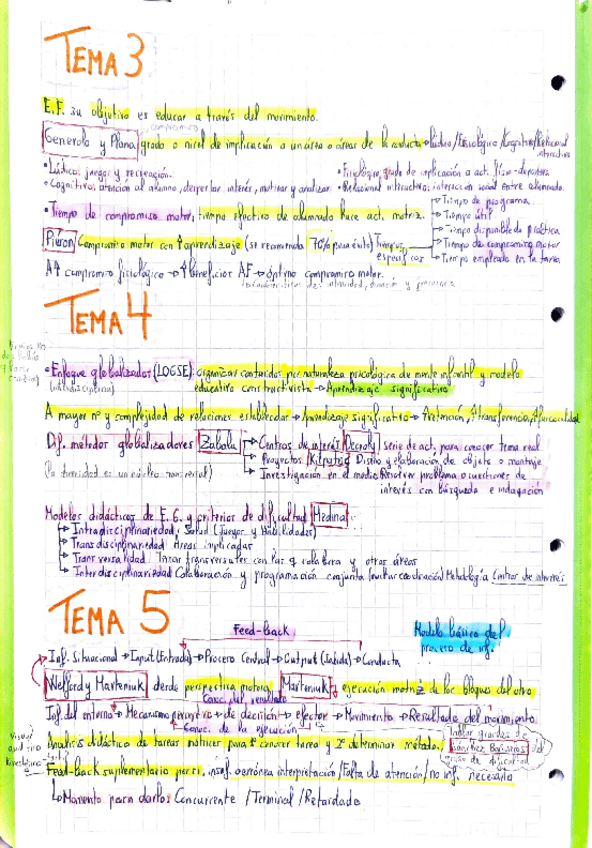 TEMA 3
E.F. su objetivo es educar a través del movimiento.
compromiso
Generelo y Plana grado o nivel de implicación a un área o áreas de la conducta → Lúdico/Fisiológico/Cognitivo/Relacional interactivo
• Lúdico: juegos y recreación.
• Fisiológico, grado de implicación a act. físico-deportiva
• Cognitivo: atención al alumno, despertar interés, motivar y analizar.
• Relacional interactivo: interacción social entre alumnado.
• Tiempo de compromiso motor, tiempo efectivo de alumnado hace act. motriz.
Piéron Compromiso motor con ↑ aprendizaje (se recomienda 70% para éxito) Tiempos específicos
→ Tiempo de programa
→ Tiempo útil
→ Tiempo disponible de práctica
→ Tiempo de compromiso motor
→ Tiempo empleado en la tarea
A ↑ compromiso fisiológico → ↑ beneficios AF → óptimo compromiso motor.
↳ Características de: intensidad, duración y
TEMA 4
• Enfoque globalizador (LOGSE): organizar contenidos por naturaleza psicológica de mente infantil y modelo
(interdisciplina) educativo constructivista → Aprendizaje significativo
A mayor nº y complejidad de relaciones establecidas → Aprendizaje significativo → ↑ retención, ↑ transferencia, ↑ funcionalidad
Dif. métodos globalizadores Zabala
→ Centros de interés Decroly serie de act. para conocer tema real
→ Proyectos Kilpatrick Diseño y elaboración de objeto o montaje
→ Investigación en el medio Resolver problema o cuestiones de
interés con búsqueda e indagación
(la diversidad es un núcleo transversal)
Modelos didácticos de E.G. y criterios de dificultad Medina:
→ Intradisciplinariedad, Salud (Juegos y Habilidades)
→ Transdisciplinariedad Áreas implicadas
→ Transversalidad Trazar transversales con las q colabora y otras áreas
→ Interdisciplinariedad Colaboración y programación conjunta (mucha coordinación) Metodología Centros de interés
TEMA 5
Feed-back
Modelo básico del
proceso de inf.
→ Inf. Situacional → Input (Entrada) → Proceso Central → Output (Salida) → Conducta
Welford y Marteniuk desde perspectiva motora. Marteniuk → ejecución motriz de los bloques del otro
Conoc. del resultado
Inf. del entorno → Mecanismo perceptivo → de decisión → efector → Movimiento → Resultado del movimiento
Conoc. de la ejecución
Análisis didáctico de tareas motrices para 1º conocer tarea y 2º determinar método.
Hablar grandes de
Sánchez Bañuelos
grado de dificultad
Visual
auditivo
kinestésico
Feed-back suplementario por si, insuf. o errónea interpretación / Falta de atención / no inf. necesaria
↳ Momento para darlo: Concurrente / Terminal / Retardado